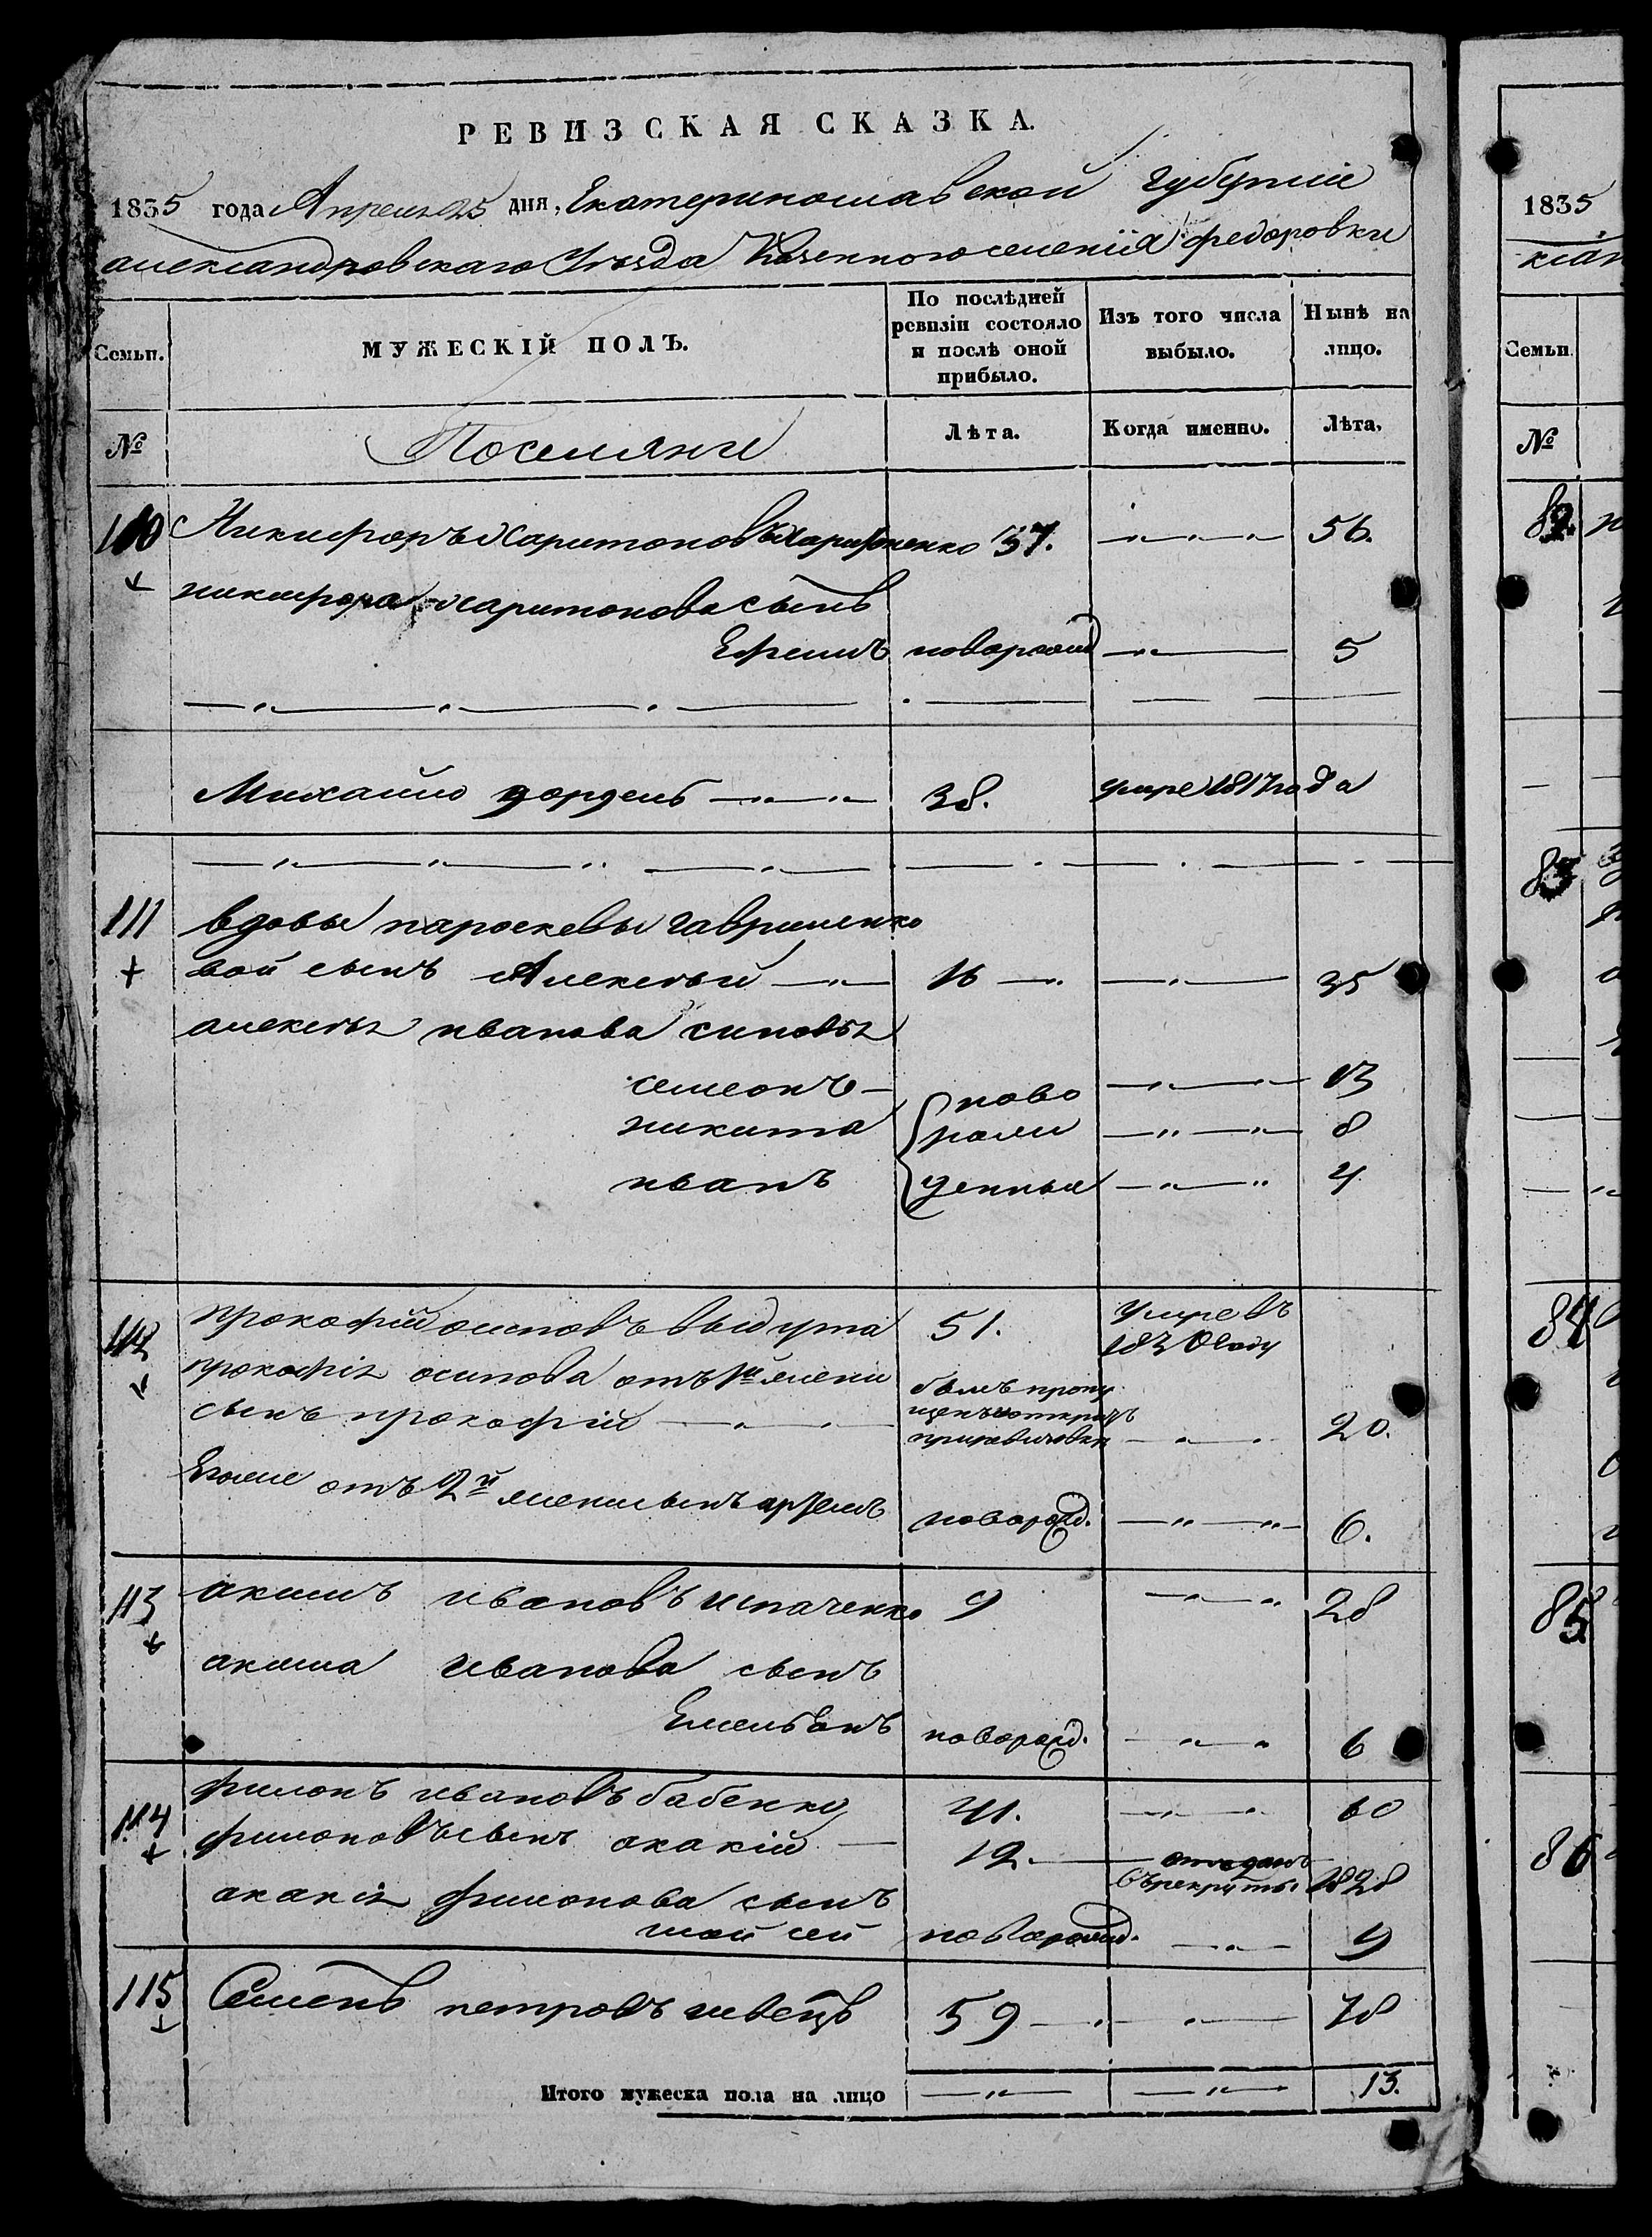 РЕВИЗСКАЯ СКАЗКА.
1835 года Апреля 25 дня, Екатеринославской Губернiи
александровскаго Уѣзда Казенного селенiя федоровки
Семьи. МУЖЕСКІЙ ПОЛЪ. По послѣдней ревизіи состояло и послѣ оной прибыло. Изъ того числа выбыло. Нынѣ на лицо.
№ Поселяне Лѣта. Когда именно. Лѣта.
110 Никифоръ Харитоновъ 37. 56.
никифора харитонова сынъ
Ефимъ новорожд 5
Михайло 38. умре 1817 года
111 вдовы парасковы гавриленко
вой сынъ Алексѣй 16 35
алексѣя иванова синовя
семеонъ ново 13
никита рож 8
иванъ денные 4
112 прокофiй осиповъ 51. умре въ 1830 году
прокофiя осипова отъ 1й жены
сынъ прокофiй былъ пропу
щенъ 20.
Егоже отъ 2й жены сынъ артемъ новорожд. 6.
113 акимъ ивановъ 9 28
акима иванова сынъ
Емельянъ новорожд. 6
114 филонъ ивановъ бабенко 41. 60
филоновъ сынъ акакiй 12. отъданъ
въ рекруты 1828
акакiя филонова сынъ
мойсей новорожд. 9
115 Семенъ петровъ швецъ 59 78
Итого мужеска пола на лицо 13.
1835
Семьи
№
82.
83
84
85
86